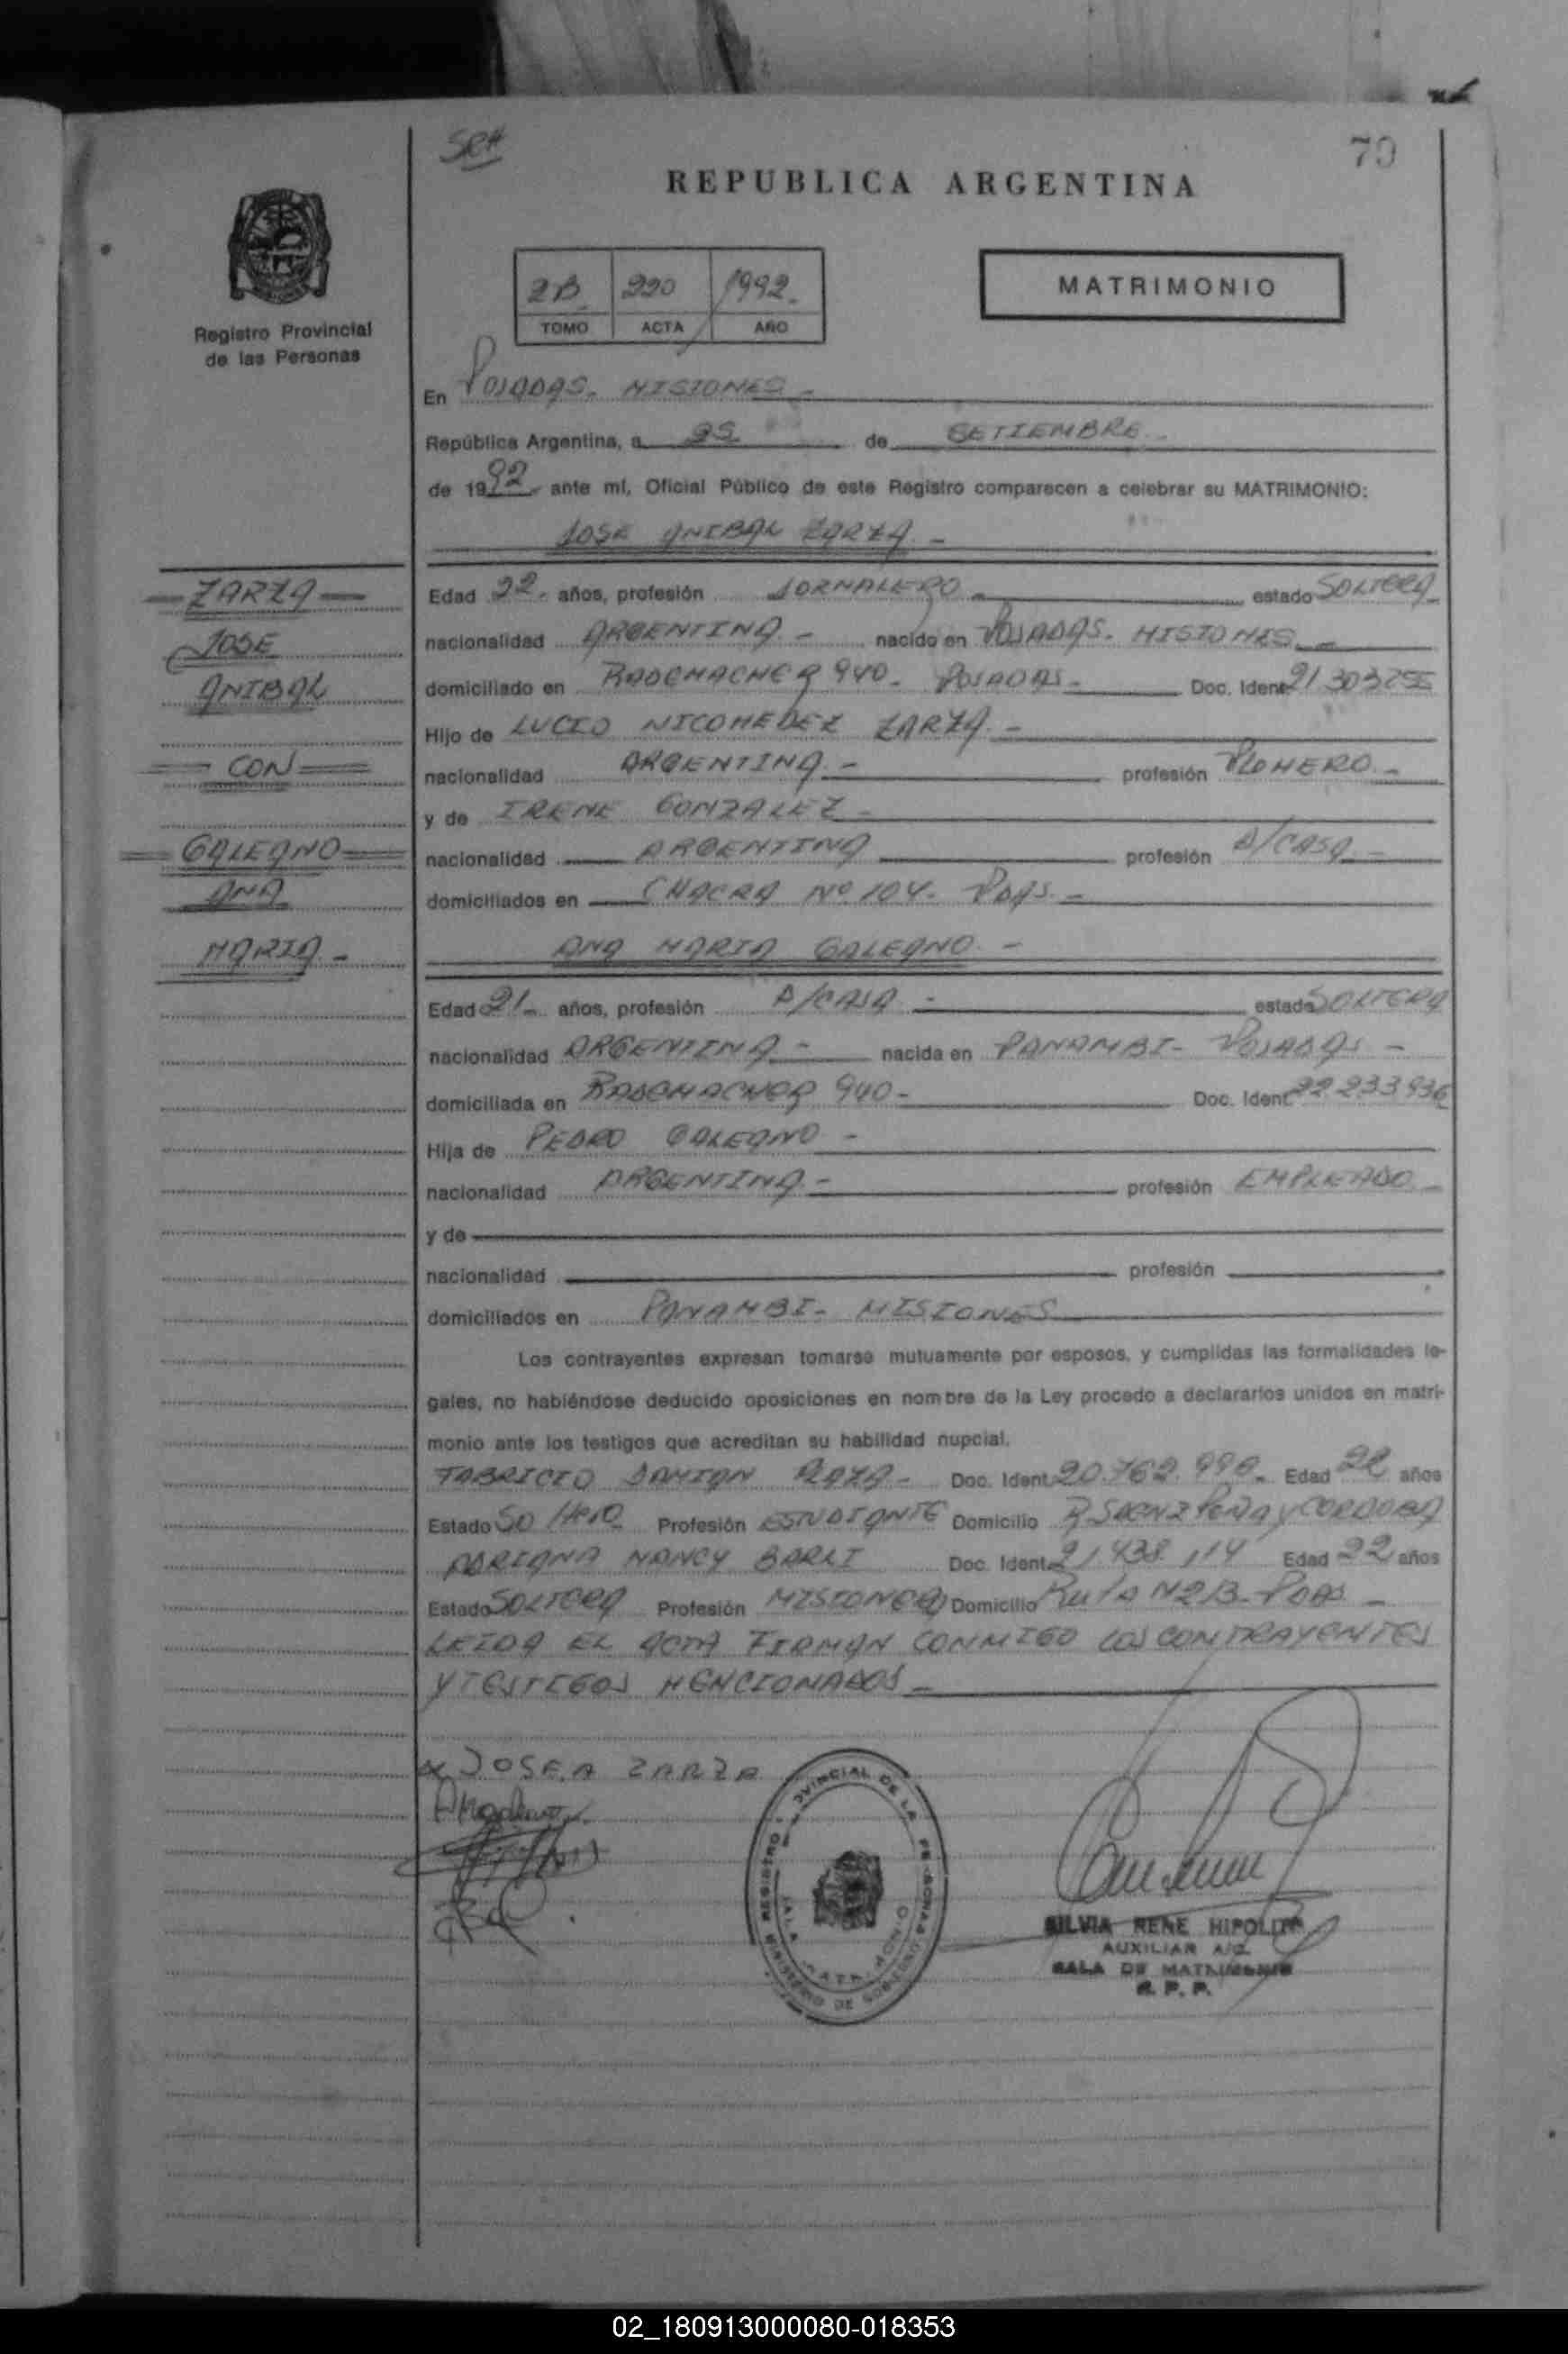 SRH
79
REPUBLICA ARGENTINA
Registro Provincial
de las Personas
2B 220 1992
TOMO ACTA AÑO
MATRIMONIO
En POSADAS - MISIONES -
República Argentina, a 25 de SETIEMBRE
de 1992 ante mí, Oficial Público de este Registro comparecen a celebrar su MATRIMONIO:
JOSE ANIBAL ZARZA -
ZARZA
JOSE
ANIBAL
CON
GALEANO
ANA
MARIA -
Edad 22 - años, profesión JORNALERO - estado SOLTERA
nacionalidad ARGENTINA - nacido en POSADAS - MISIONES -
domiciliado en RADEMACHER 940 - POSADAS - Doc. Ident. 21 303
Hijo de LUCIO NICOMEDEZ ZARZA -
nacionalidad ARGENTINA - profesión PLOMERO -
y de IRENE GONZALEZ -
nacionalidad ARGENTINA profesión A/CASA -
domiciliados en CHACRA Nº 104 - PDAS. -
ANA MARIA GALEANO -
Edad 21 - años, profesión A/CASA - estado SOLTERA
nacionalidad ARGENTINA - nacida en PANAMBI - POSADAS -
domiciliada en RADEMACHER 940 - Doc. Ident. 22 233 936
Hija de PEDRO GALEANO -
nacionalidad ARGENTINA - profesión EMPLEADO -
y de
nacionalidad profesión
domiciliados en PANAMBI - MISIONES
Los contrayentes expresan tomarse mutuamente por esposos, y cumplidas las formalidades le-
gales, no habiéndose deducido oposiciones en nombre de la Ley procedo a declararlos unidos en matri-
monio ante los testigos que acreditan su habilidad nupcial.
FABRICIO DAMIAN PLAZA - Doc. Ident. 20.762.996 - Edad 22 años
Estado Soltero Profesión ESTUDIANTE Domicilio R. SAENZ PEÑA y CORDOBA
ADRIANA NANCY BARLI Doc. Ident. 21 438 114 Edad 22 años
Estado SOLTERA Profesión MISIONERA Domicilio Ruta N 213 - PDAS -
LEIDA EL ACTA FIRMAN CONMIGO LOS CONTRAYENTES
Y TESTIGOS MENCIONADOS -
x JOSE.A ZARZA
REGISTRO PROVINCIAL DE LAS PERSONAS
MINISTERIO DE GOBIERNO
SALA MATRIMONIO
SILVIA RENE HIPOLITA
AUXILIAR A/C
SALA DE MATRIMONIO
R. P. P.
02_180913000080-018353